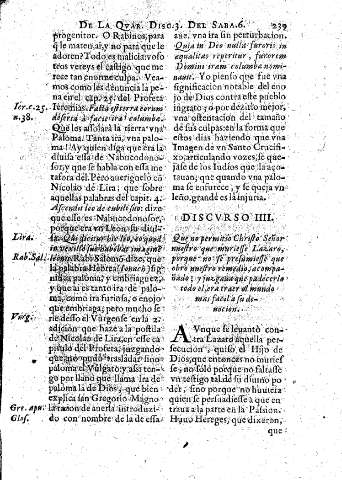 De La Qvar. Disc. 3. Del Saba. 6. 239
progenitor. O Rabinos, para
q̃ le matan, y no para que le
adoren? Todo es malicia: vosotros
vereys el castigo que me
rece tan gran culpa. Vea-
mos como les denuncia la pe-
na el cap. 25. del Profeta
Ieremias. Facta est terra eorum
deserta à facie iræ columbæ.
Que les assolarà la tierra vna
Paloma. Tanta ira, vna palo-
ma! Ay quien diga que era la
diuisa essa de Nabucodonosor,
y que se habla con essa me
tafora del. Pero aueriguelo cõ
Nicolao de Lira; que sobre
aquellas palabras del capit. 4.
Ascendit leo de cubili suo: dize
que esse es Nabucodonosor,
por que era vn Leon su diuisa.
Rabi Salomò dizo, que
la palabra Hebrea
significa paloma, y embriaguez,
y que aì es tanto ira de palo-
ma, como ira furiosa, o enojo
que embriaga; pero mucho se
rie desso el Vurgense en la 2.
adicion que haze a la postila
de Nicolao de Lira, en esse ca
pitulo del Profeta, juzgando
que no pudo trasladar sino
paloma el Vulgato; y assi ten-
go por llano que llama ira de
paloma la de Dios, que bien
explica san Gregorio Magno
la razon de auerla introduzi-
do con nombre de la de essa
Ier. c. 25.
n. 38.
Lira.
Rab. Sal.
Vurg.
Gre. apu.
Glos.
aue. vna ira sin perturbacion.
Quia in Deo nulla furoris in
æqualitas reperitur, furorem
Domini iram columbæ nomi-
nant. Y yo pienso que fue vna
significacion notable del eno
jo de Dios contra este pueblo
ingrato; o por dezirlo mejor,
vna ostentacion del tamaño
de sus culpas, en la forma que
estos dias haziendo que vna
Imagen de vn Santo Crucifi-
xo, articulando vozes, se que-
jasse de los Iudios que la aço-
tauan; que quando vna palo-
ma se enfurece, y se queja vn
leño, grande es la injuria.
DISCVRSO IIII.
Que no permitio Christo Señor
nuestro que muriesse Lazaro,
porque no se presumiesse que
obrò nuestro remedio, acompa-
ñado; y juzgauã que padecerlo
todo el, era traer al mundo
mas facil a su de-
nocion.
AVnque se leuantò con-
tra Lazaro aquella per-
secucion, quiso el Hijo de
Dios, que entonces no murief
se; no solo porque no faltasse
vn testigo tal de su diuino po
der, sino porque no huuiera
quien se persuadiesse a que en
traua a la parte en la Passion.
Huuo Hereges, que dixeron,
que